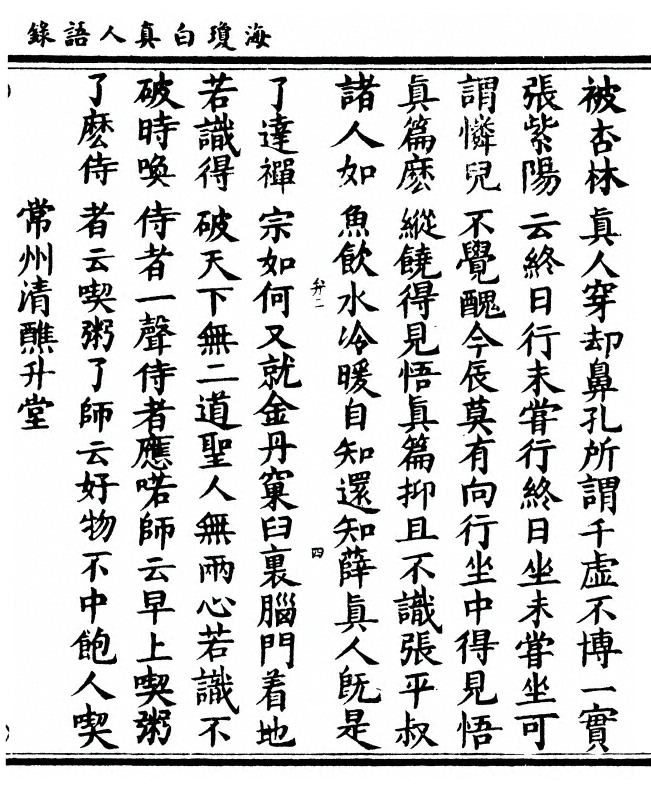 海瓊白真人語錄
被杏林真人穿却鼻孔所謂千虛不博一實
張紫陽云終日行未甞行終日坐未甞坐可
謂憐兒不覺醜今辰莫有向行坐中得見悟
真篇麽縱饒得見悟真篇抑且不識張平叔
諸人如魚飲水冷暖自知還知薛真人旣是
弁二
四
了達禪宗如何又就金丹窠臼裏腦門着地
若識得破天下無二道聖人無兩心若識不
破時喚侍者一聲侍者應喏師云早上喫粥
了麽侍者云喫粥了師云好物不中飽人喫
常州清醮升堂